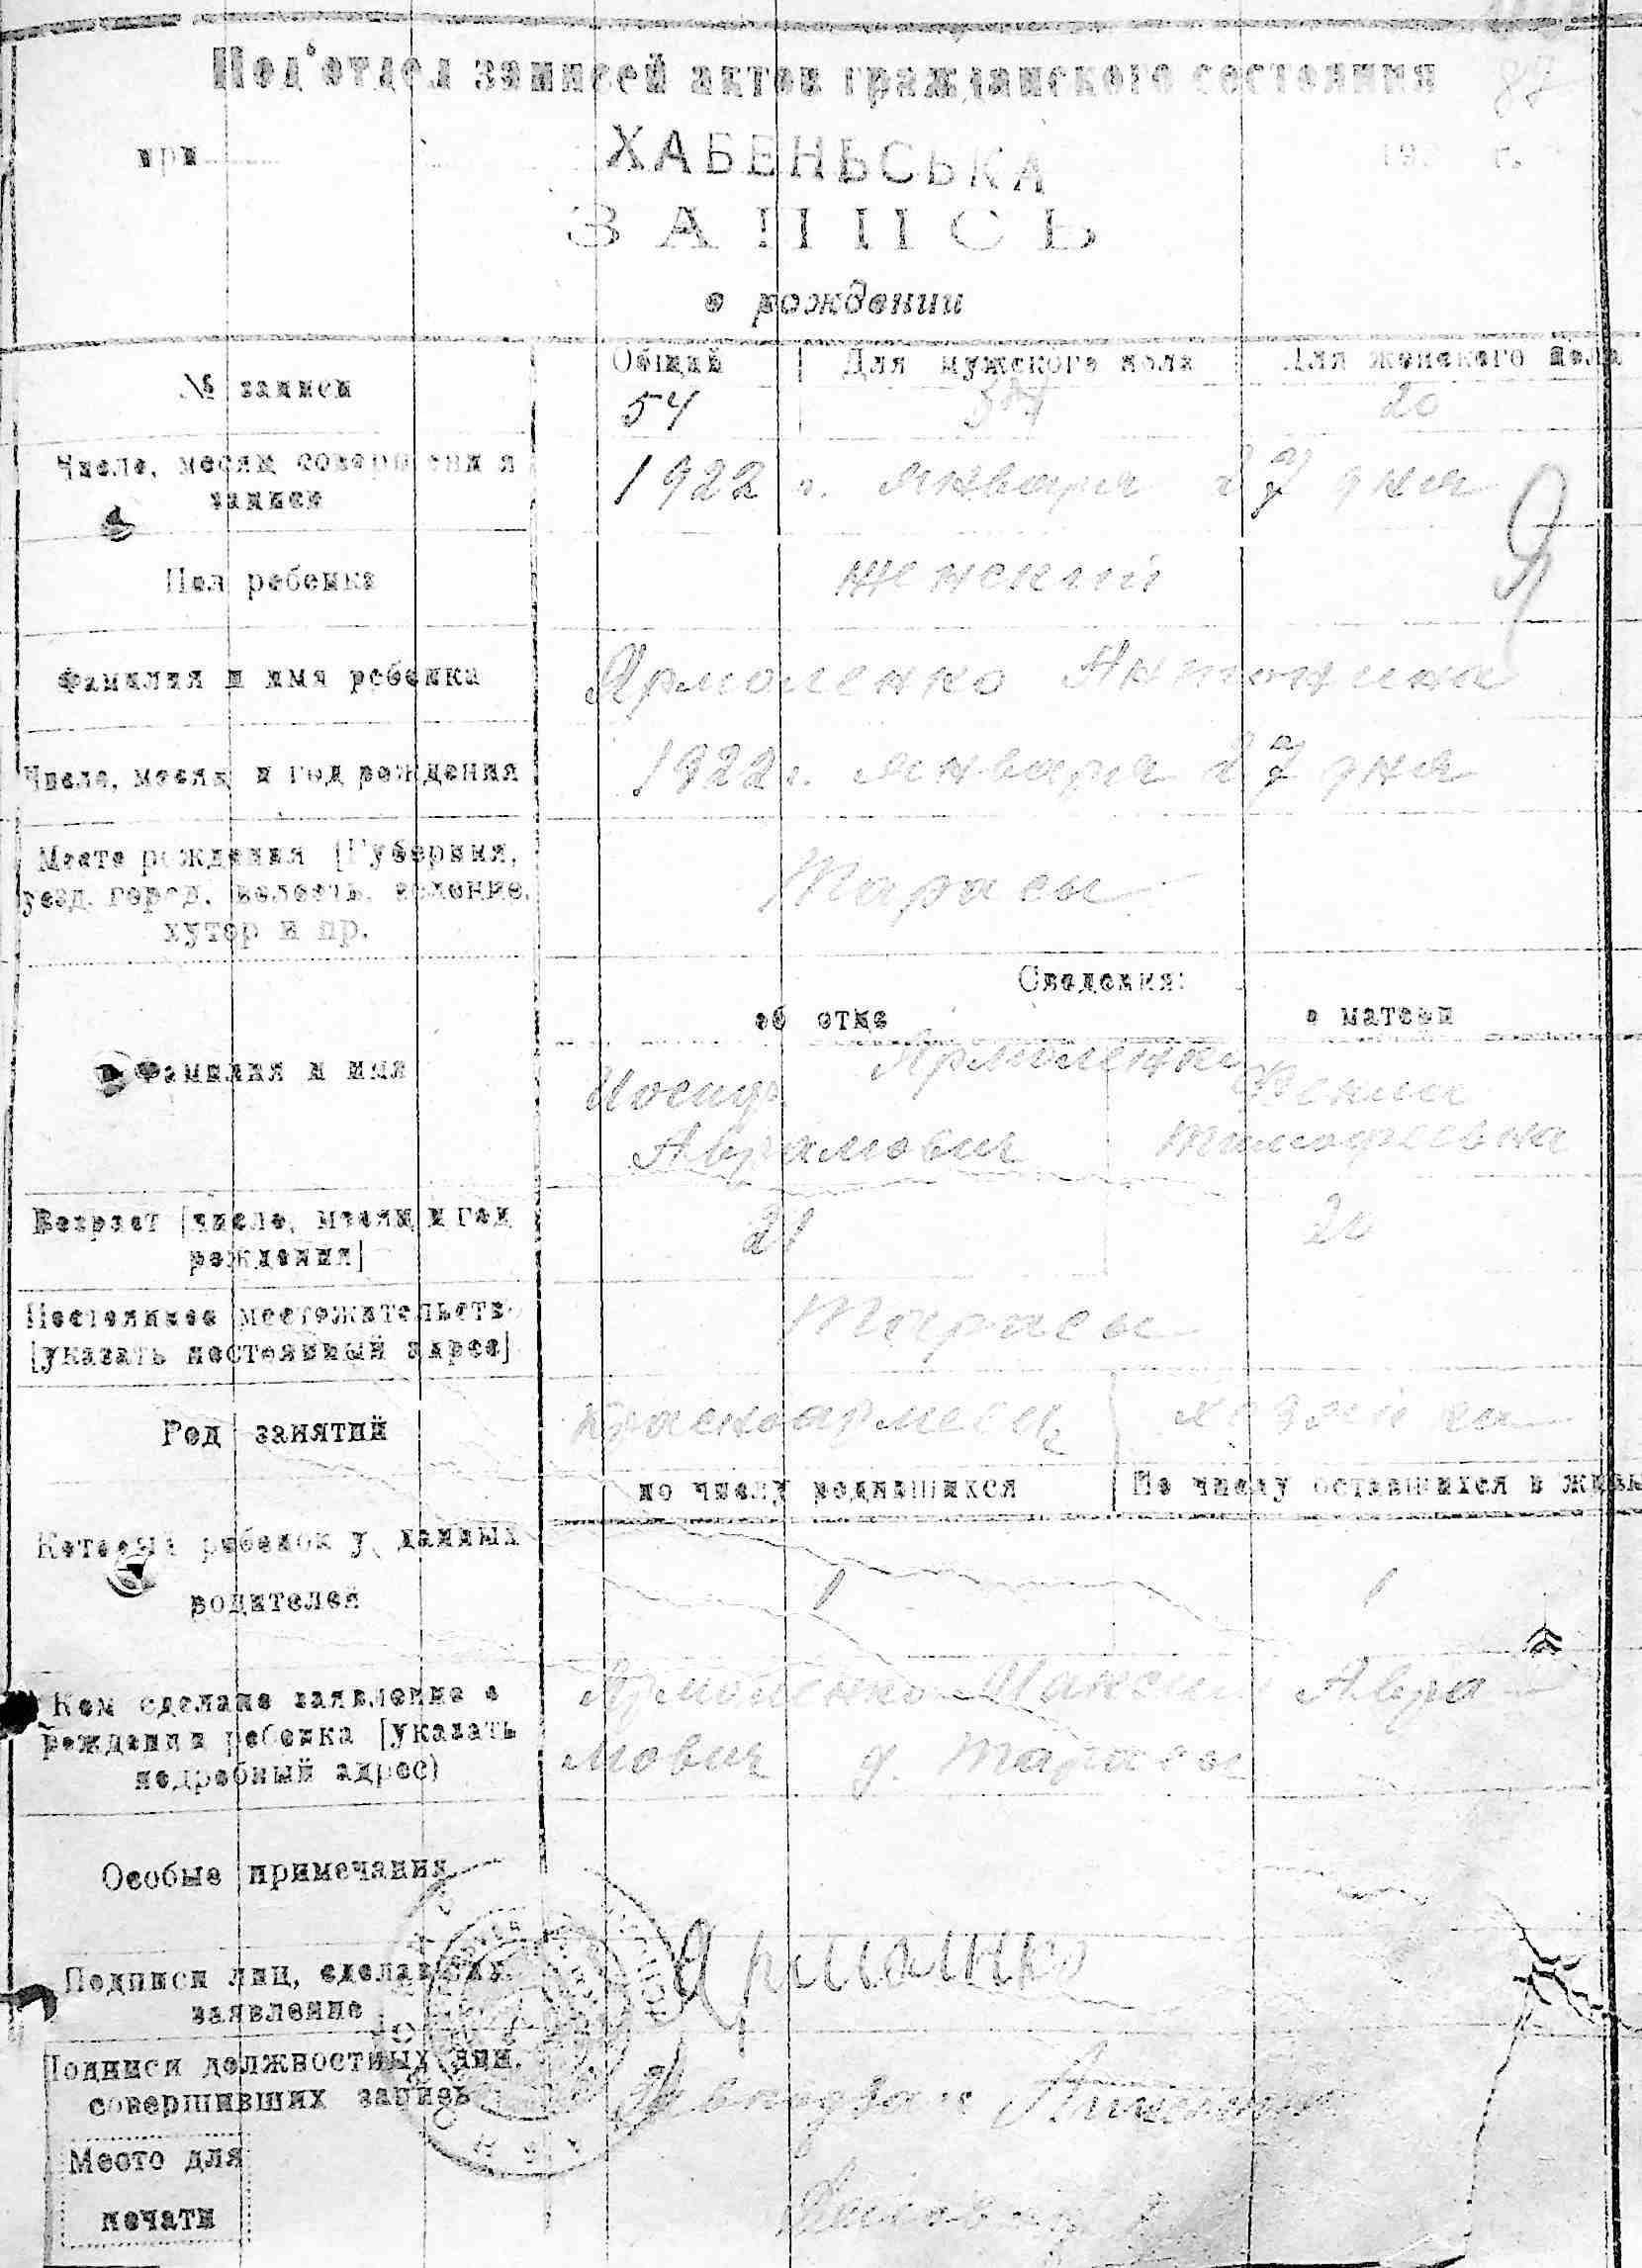 Под'отдел записей актов гражданского состояния
87
при
ХАБЕНЬСЬКА
19 г.
ЗАПИСЬ
о рождении
№ записи
Общий Для мужского пола Для женского пола
54 20
Число, месяц совершения
записи
1922 г. января 27 дня
Я
Пол ребенка
женский
Фамилия и имя ребенка
Ярмоленко Антонина
Число, месяц и год рождения
1922 г. января 27 дня
Место рождения [Губерния,
уезд, город, волость, селение,
хутор и пр.
Тарасы
Сведения:
об отце о матери
Фамилия и имя
Ярмоленки
Иосиф Ксения
Аврамович Тимофеевна
Возраст [число, месяц и год
рождения]
21 20
Постоянное местожительство
[указать постоянный адрес]
Тарасы
Род занятий
Красноармеец хозяйка
по числу родившихся По числу оставшихся в жив
Который ребенок у данных
родителей
1 1
Кем сделано заявление о
рождении ребенка [указать
подробный адрес)
Ярмоленко Максим Авра
мович д. Тарасы
Особые примечания
Подписи лиц, сделавших
заявление
Ярмолнко
Подписи должностных лиц,
совершивших запись
Место для
печати